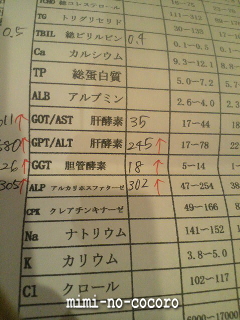 総コレステロール
TG トリグリセリド 111~
0.5 TBIL 総ビリルビン 0.4 0.1~0.
Ca カルシウム 9.3~12.1
TP 総蛋白質 5.0~7.2
ALB アルブミン 2.6~4.0
011↑ GOT/AST 肝酵素 35 17~44
580↑ GPT/ALT 肝酵素 245↑ 17~78
26↑ GGT 胆管酵素 18↑ 5~14 1~
305↑ ALP アルカリホスファターゼ 302↑ 47~254
CPK クレアチンキナーゼ 49~166
Na ナトリウム 141~152
K カリウム 3.8~5.0
Cl クロール 102~117
mimi-no-cocoro
6000~17000